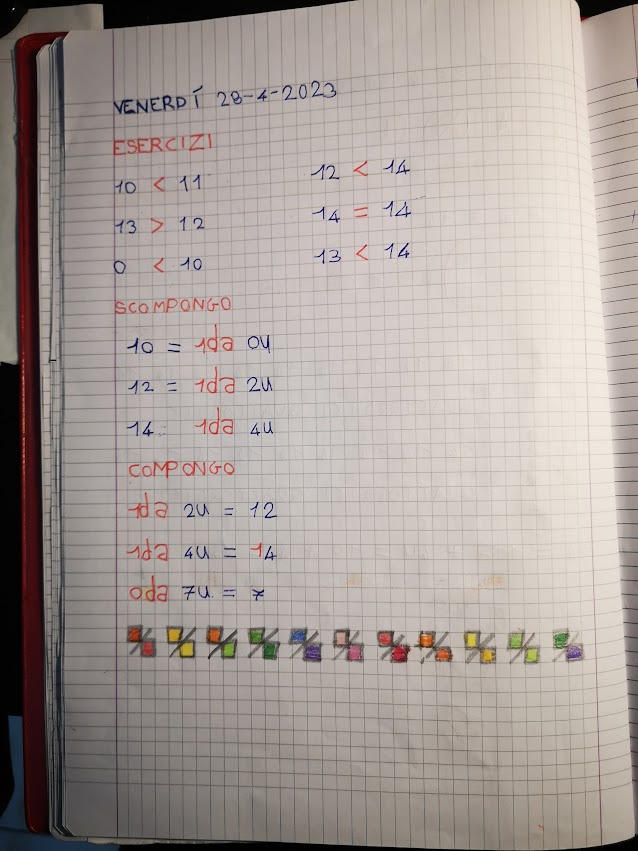 VENERDÍ 28-4-2023
ESERCIZI
10 < 11
13 > 12
0 < 10
12 < 14
14 = 14
13 < 14
SCOMPONGO
10 = 1da 0u
12 = 1da 2u
14 1da 4u
COMPONGO
1da 2u = 12
1da 4u = 14
0da 7u = 7